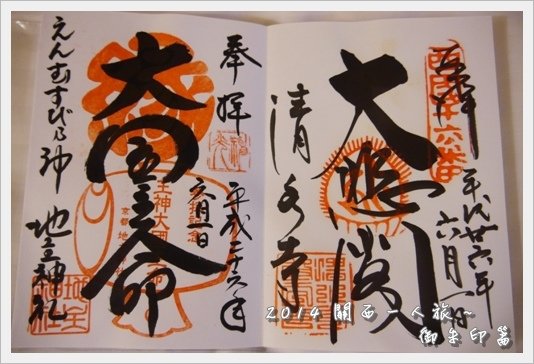 奉拝
西国十六番
平成廿六年
六月一日
大悲閣
清水寺
奉拝
平成二十六年
六月一日
大国主命
えんむすび乃神
地主神社
2014 關西一人旅~
御朱印篇